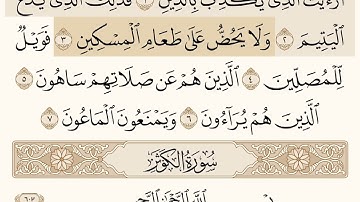 أَرَءَيْتَ ٱلَّذِى يُكَذِّبُ بِٱلدِّينِ ١ فَذَٰلِكَ ٱلَّذِى يَدُعُّ
ٱلْيَتِيمَ ٢ وَلَا يَحُضُّ عَلَىٰ طَعَامِ ٱلْمِسْكِينِ ٣ فَوَيْلٌ
لِّلْمُصَلِّينَ ٤ ٱلَّذِينَ هُمْ عَن صَلَاتِهِمْ سَاهُونَ ٥
ٱلَّذِينَ هُمْ يُرَآءُونَ ٦ وَيَمْنَعُونَ ٱلْمَاعُونَ ٧
سُورَةُ ٱلْكَوْثَرِ
٦٠٢